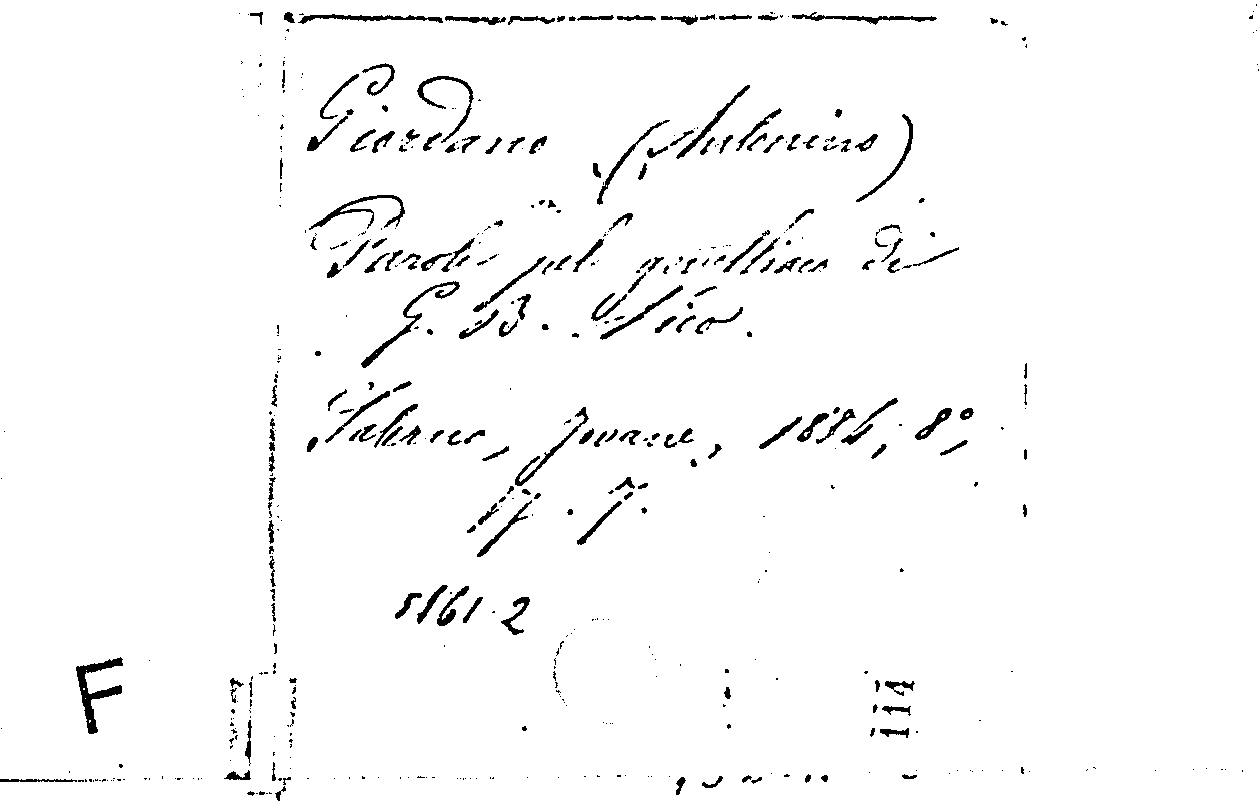 Giordano (Antonino)
Parole pel gonellino di
G. B. Vico.
Salerno, Jovane, 1884, 8º,
p. 7.
5161 2
F
114